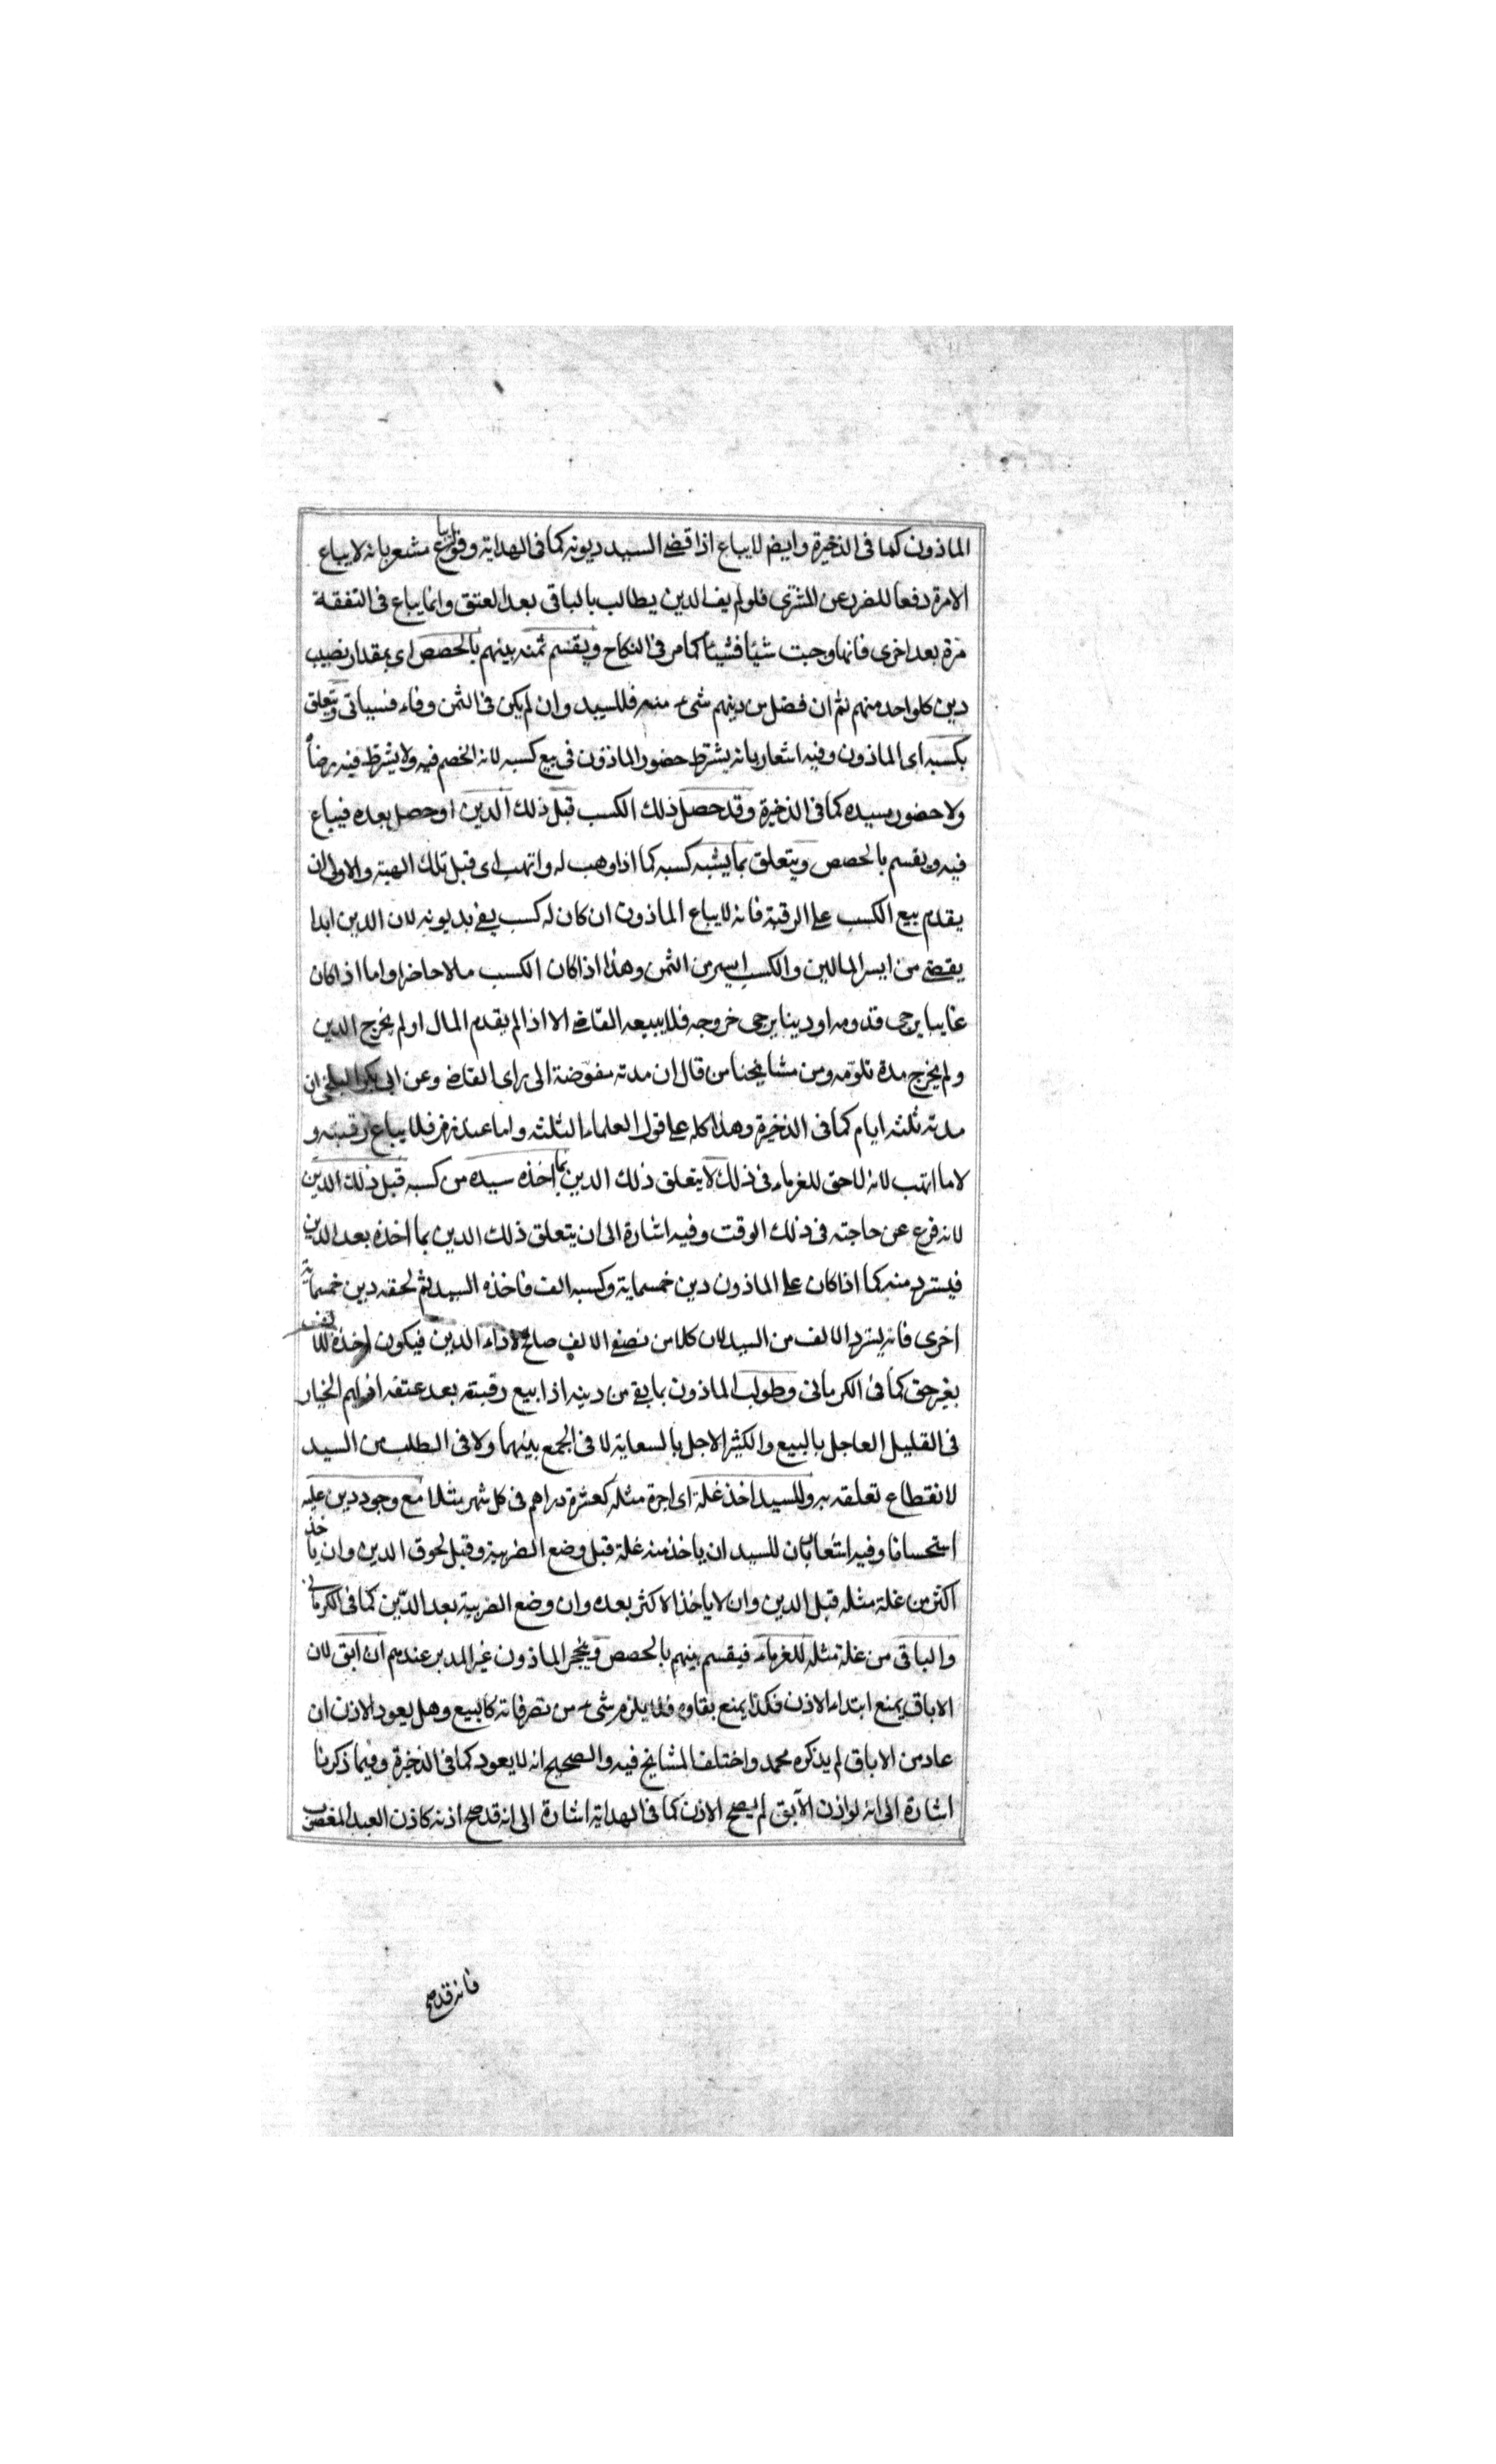 الماذون كما فى الذخيرة وايضا لا يباع اذا قضى السيد ديونه كما فى الهداية وقوله يباع مشعر بانه لا يباع
الا مرة دفعا للضرر عن المشترى فلو لم يف الدين يطالب بالباقى بعد العتق وانما يباع فى النفقة
مرة بعد اخرى فانها وجبت شيئا فشيئا كما مر فى النكاح ويقسم ثمنه بينهم بالحصص اى بمقدار نصيب
دين كل واحد منهم ثم ان فضل من دينهم شىء منه فللسيد وان لم يكن فى الثمن وفاء فسياتى ويتعلق
بكسبه اى الماذون وفيه اشعار بانه يشترط حضور الماذون فى بيع كسبه لانه الخصم فيه ولا يشترط فيه رضاً
ولا حضور سيده كما فى الذخيرة وقد حصل ذلك الكسب قبل ذلك الدين او حصل بعده فيباع
فيه ويقسم بالحصص ويتعلق بما يشبه كسبه كما اذا وهب له واتهب اى قبل تلك الهبة والاولى ان
يقدم بيع الكسب على الرقبة فانه لا يباع الماذون ان كان له كسب يفى بديونه لان الدين ابدا
يقضى من ايسر المالين والكسب ايسر من الثمن وهذا اذا كان الكسب مالا حاضرا واما اذا كان
غايبا يرجى قدومه او دينا يرجى خروجه فلا يبيعه القاضى الا اذا لم يقدم المال او لم يخرج الدين
ولم يخرج مدة تلومه ومن مشايخنا من قال ان مدته مفوضة الى راى القاضى وعن ابى بكر البلخى ان
مدته ثلثه ايام كما فى الذخيرة وهذا كله على قول العلماء الثلثه واما عند زفر فلا يباع رقبته و
لا ما اتهب لانه لا حق للغرماء فى ذلك لا يتعلق ذلك الدين بما اخذه سيده من كسبه قبل ذلك الدين
لانه فرغ عن حاجته فى ذلك الوقت وفيه اشارة الى ان يتعلق ذلك الدين بما اخذه بعد الدين
فيسترد منه كما اذا كان على الماذون دين خمسماية وكسبه الف فاخذه السيد ثم لحقه دين خمسماية
اخرى فانه يسترد الالف من السيد لان كلا من نصفى الالف صالح لاداء الدين فيكون اخذه للالف
بغير حق كما فى الكرمانى وطولب الماذون بما بقى من دينه اذا بيع رقبته بعد عتقه اذ لهم الخيار
فى القليل العاجل بالبيع والكثير الاجل بالسعاية لا فى الجمع بينهما ولا فى الطلب من السيد
لانقطاع تعلقه به وللسيد اخذ غلة اى اجرة مثله كعشرة دراهم فى كل شهر مثلا مع وجود دين عليه
استحسانا وفيه اشعار بان للسيد ان ياخذ منه غلة قبل وضع الضريبة وقبل لحوق الدين وان ياخذ
اكثر من غلة مثله قبل الدين وان لا ياخذ الاكثر بعده وان وضع الضريبة بعد الدين كما فى الكرمانى
والباقى من غلة مثله للغرماء فيقسم بينهم بالحصص وينحجر الماذون غير المدبر عندهم ان ابق لان
الاباق يمنع ابتداء الاذن فكذا يمنع بقاوه فلا يلزم شىء من تصرفاته كالبيع وهل يعود الاذن ان
عاد من الاباق لم يذكره محمد واختلف المشايخ فيه والصحيح انه لا يعود كما فى الذخيرة وفيما ذكرنا
اشارة الى انه لو اذن الآبق لم يصح الاذن كما فى الهداية اشارة الى انه قد صح اذنه كاذن العبد المغصوب
فانه قد صح